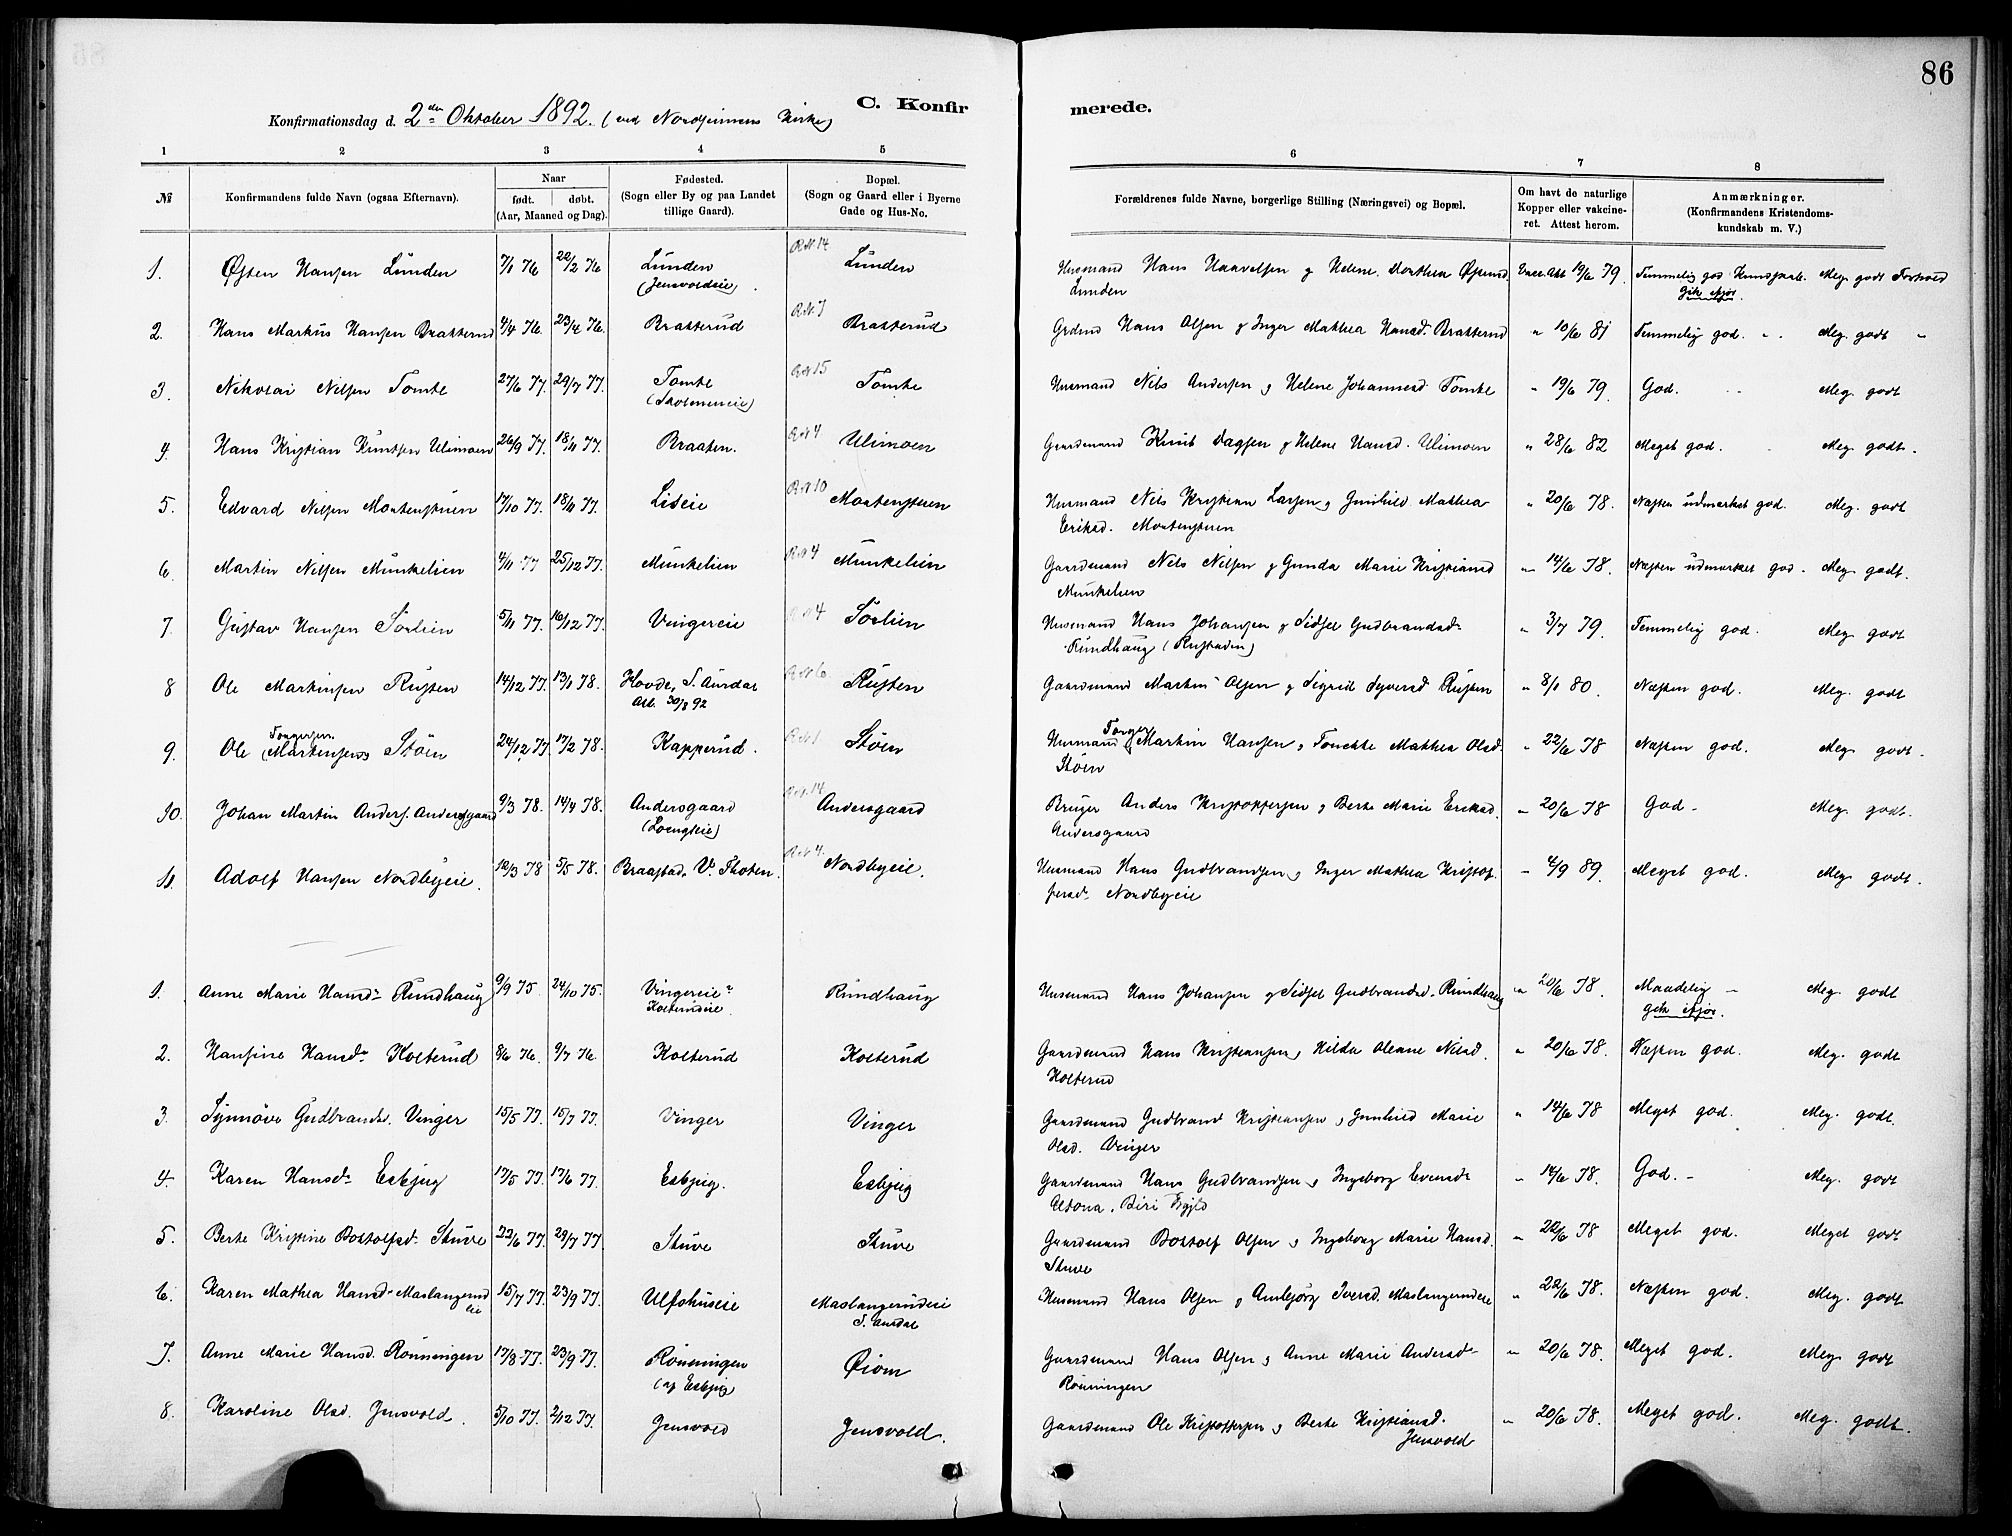 86
C. Konfirmerede.
Konfirmationsdag d. 2den Oktober 1892. (ved Nordsinnens Kirke)
1 2 3 4 5 6 7 8
№ Konfirmandens fulde Navn (ogsaa Efternavn). Naar født. døbt. (Aar, Maaned og Dag). Fødested. (Sogn eller By og paa Landet tillige Gaard). Bopæl. (Sogn og Gaard eller i Byerne Gade og Hus-No. Forældrenes fulde Navne, borgerlige Stilling (Næringsvei) og Bopæl. Om havt de naturlige Kopper eller vakcineret. Attest herom. Anmærkninger. (Konfirmandens Kristendomskundskab m. V.)
1. Østen Hansen Lunden 7/1 76 22/2 76 Lunden (Jensvoldeie). R.N. 14 Lunden Husmand Hans Haavelsen g Helene Dorthea Østensd. Lunden Vacc. Att 19/6 79. Temmelig god Kundskab. Meg. godt Forhold
gik ifjor.
2. Hans Markus Hansen Brakterud 4/4 76. 23/4 76. Brakterud R.N. 7 Brakterud Grdmd Hans Olsen g Inger Mathea Hansd. Brakterud " 10/6 81 Temmelig god. " Meg. godt "
3. Nikolai Nilsen Tomte 27/6 77. 29/7 77. Tomte R.N. 15 Tomte Husmand Nils Andersen g Helene Johannesd Tomte " 19/6 79. God. Meg. godt
4. Hans Kristian Knutsen Ulimoen 26/9 77. 18/11 77. Braaten. R.N. 4 Ulimoen Gaardmand Knut Dagsen g Helene Hansd. Ulimoen " 28/6 82 Meget god. Meg. godt.
5. Edvard Nilsen Mortenstuen 17/10 77. 18/11 77. Liseie R.N. 10 Mortenstuen Husmand Nils Kristian Larsen g Gunhild Mathea Eriksd. Mortenstuen " 20/6 78. Næsten udmærket god. Meg. godt
6. Martin Nilsen Munkelien 4/11 77 25/12 77. Munkelien R.N. 4 Munkelien Gaardmand Nils Nilsen g Gunda Marie Kristiansd Munkelien " 14/6 78. Næsten udmærket god. Meg. godt.
7. Gustav Hansen Sørlien 5/11 77. 16/12 77. Vingereie R.N. 4 Sørlien Husmand Hans Johansen g Sidsel Gudbrandsd. Rundhaug (Rustaden) " 3/7 79. Temmelig god. Meg. godt
8 Ole Martinsen Rusten 14/12 77. 13/1 78. Hovde, S. Aurdal Att. 30/8 92 R.N. 6 Rusten Gaardmand Martin Olsen g Sigrid Syversd Rusten " 8/1 80. Næsten god. Meg. godt
9. Ole (Martinsen) Støen 24/12 77 17/2 78. Kapperud. R.N. 1 Støen Husmand Martin Hansen g Mathea Olsd. Støen " 22/6 78 Næsten god. Meg. godt.
10. Johan Martin Anders. Andersgaard 9/3 78. 14/4 78. Andersgaard (Loengseie) R.N. 14 Andersgaard Bruger Anders Kristoffersen g Berte Marie Eriksd. Andersgaard " 20/6 78 God - Meg. godt.
11. Adolf Hansen Nordbyeie. 12/3 78 5/5 78. Braastad, V. Thoten. R.N. 4. Nordbyeie. Husmand Hans Gudbrandsen g Inger Mathea Kristoffersd. Nordbyeie " 4/9 89. Meget god. Meg. godt.
1. Anne Marie Hansd. Rundhaug 9/9 75. 24/10 75. Vingereie Kolterudeie. Rundhaug Husmand Hans Johansen g Sidsel Gudbrandsd. Rundhaug " 20/6 78. Maadelig - Meg. godt
gik ifjor.
2. Hansine Hansd. Kolterud 8/6 76. 9/7 76. Kolterud Kolterud Gaardmand Hans Kristiansen g Hilda Oleane Nilsd. Kolterud " 20/6 78. Næsten god. Meg. godt
3. Synnøve Gudbrandsd. Vinger 15/5 77. 15/7 77. Vinger Vinger Gaardmand Gudbrand Kristiansen g Gunhild Marie Olsd. Vinger " 14/6 78 Meget god. Meg. godt.
4. Karen Hansd. Esbjug 17/5 77. 17/6 77. Esbjug. Esbjug Gaardmand Hans Gudbrandsen g Ingeborg Evensd. Altona, Biri " 14/6 78. God. - Meg. godt
5. Berte Kristine Bottolfsd. Stuve 22/6 77. 29/7 77. Stuve Stuve Gaardmand Bottolf Olsen g Ingeborg Marie Hansd. Stuve " 22/6 78 Meget god. Meget godt
6. Karen Mathea Hansd. Maslangerudeie 15/7 77. 23/9 77. Ulfshuseie Maslangerudeie S. Aurdal Husmand Hans Olsen g Ambjørg Iversd. Maslangerudeie " 22/6 78. Næsten god. Meg. godt
7. Anne Marie Hansd. Rønningen 17/8 77. 23/9 77. Rønningen (af Esbjug) Øiom Gaardmand Hans Olsen g Anne Marie Andersd. Rønningen " 20/6 78. Meget god. Meg. godt
8. Karoline Olsd. Jensvold. 5/10 77. 2/12 77. Jensvold Jensvold. Gaardmand Ole Kristoffersen g Berte Kristiansd. Jensvold " 20/6 78. Meget god. Meg. godt.